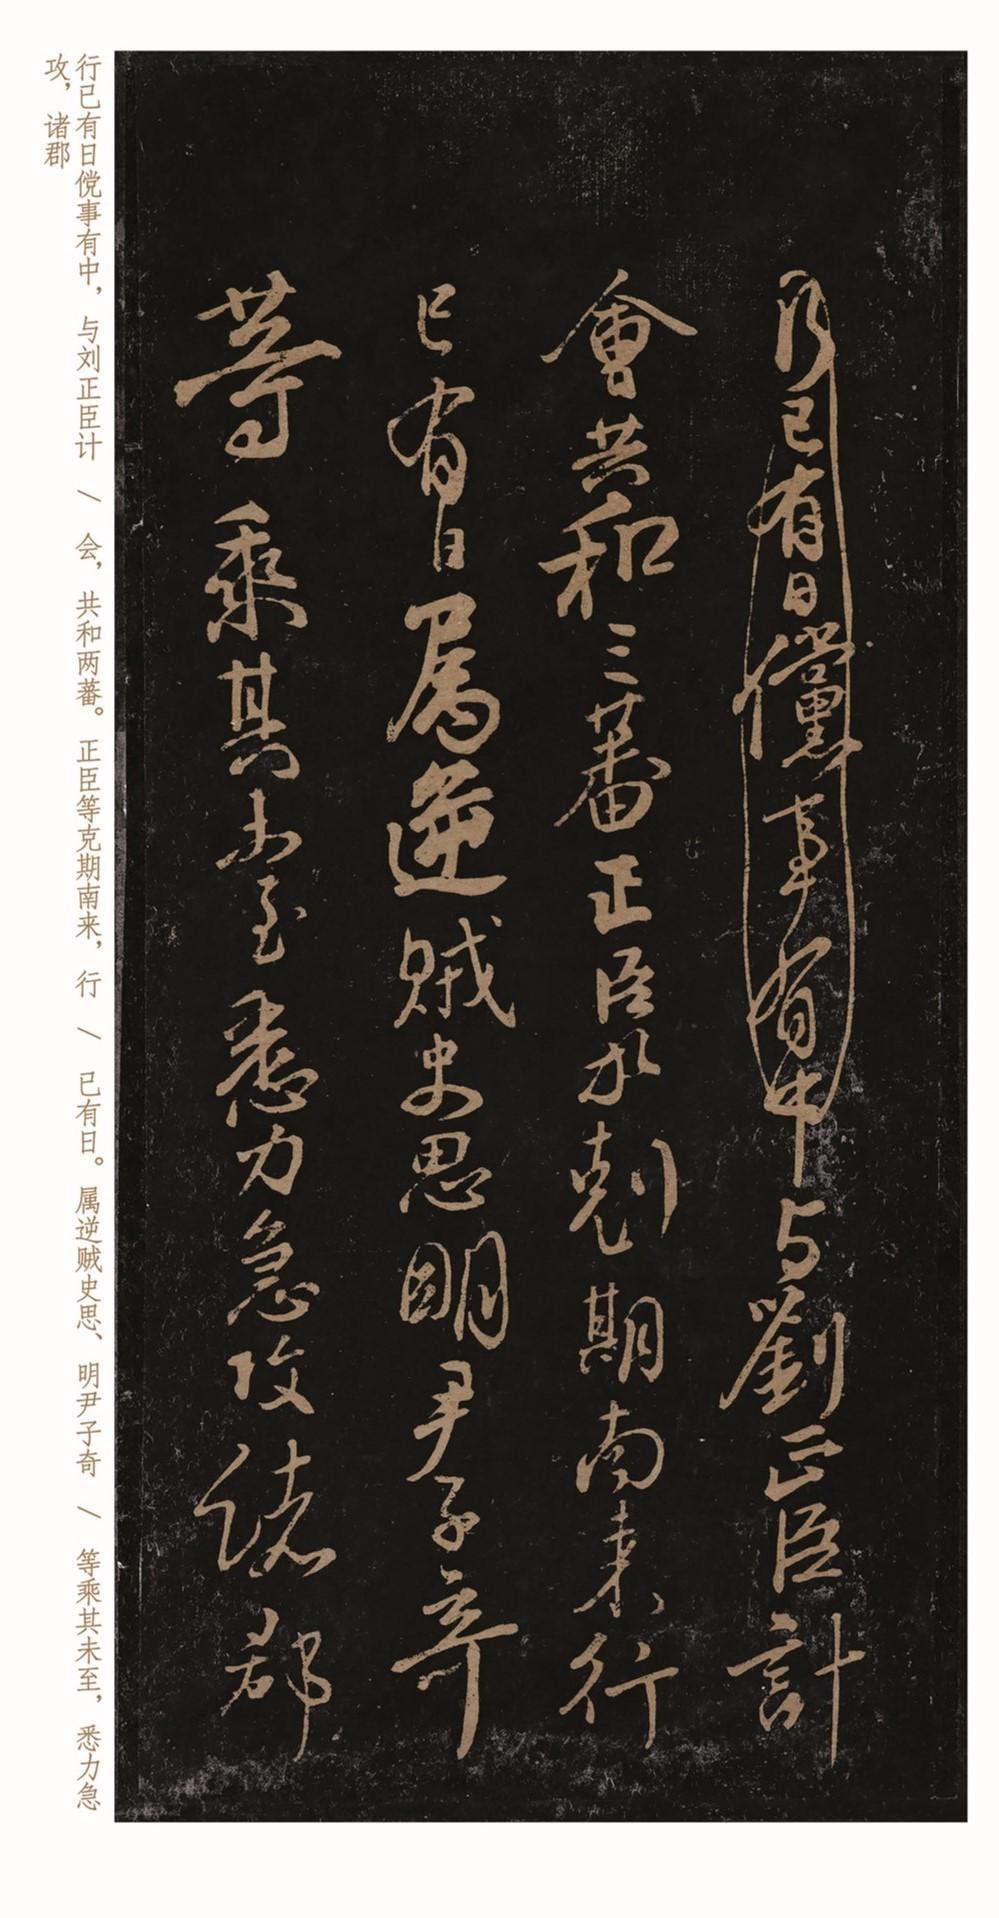 行已有日儻事有中与劉正臣計
會共和三蕃正臣等剋期南来行
已有日属逆賊史思明尹子奇
等乘其未至悉力急攻諸郡
行已有日傥事有中，与刘正臣计 / 会，共和两蕃。正臣等克期南来，行 / 已有日。属逆贼史思、明尹子奇 / 等乘其未至，悉力急
攻，诸郡